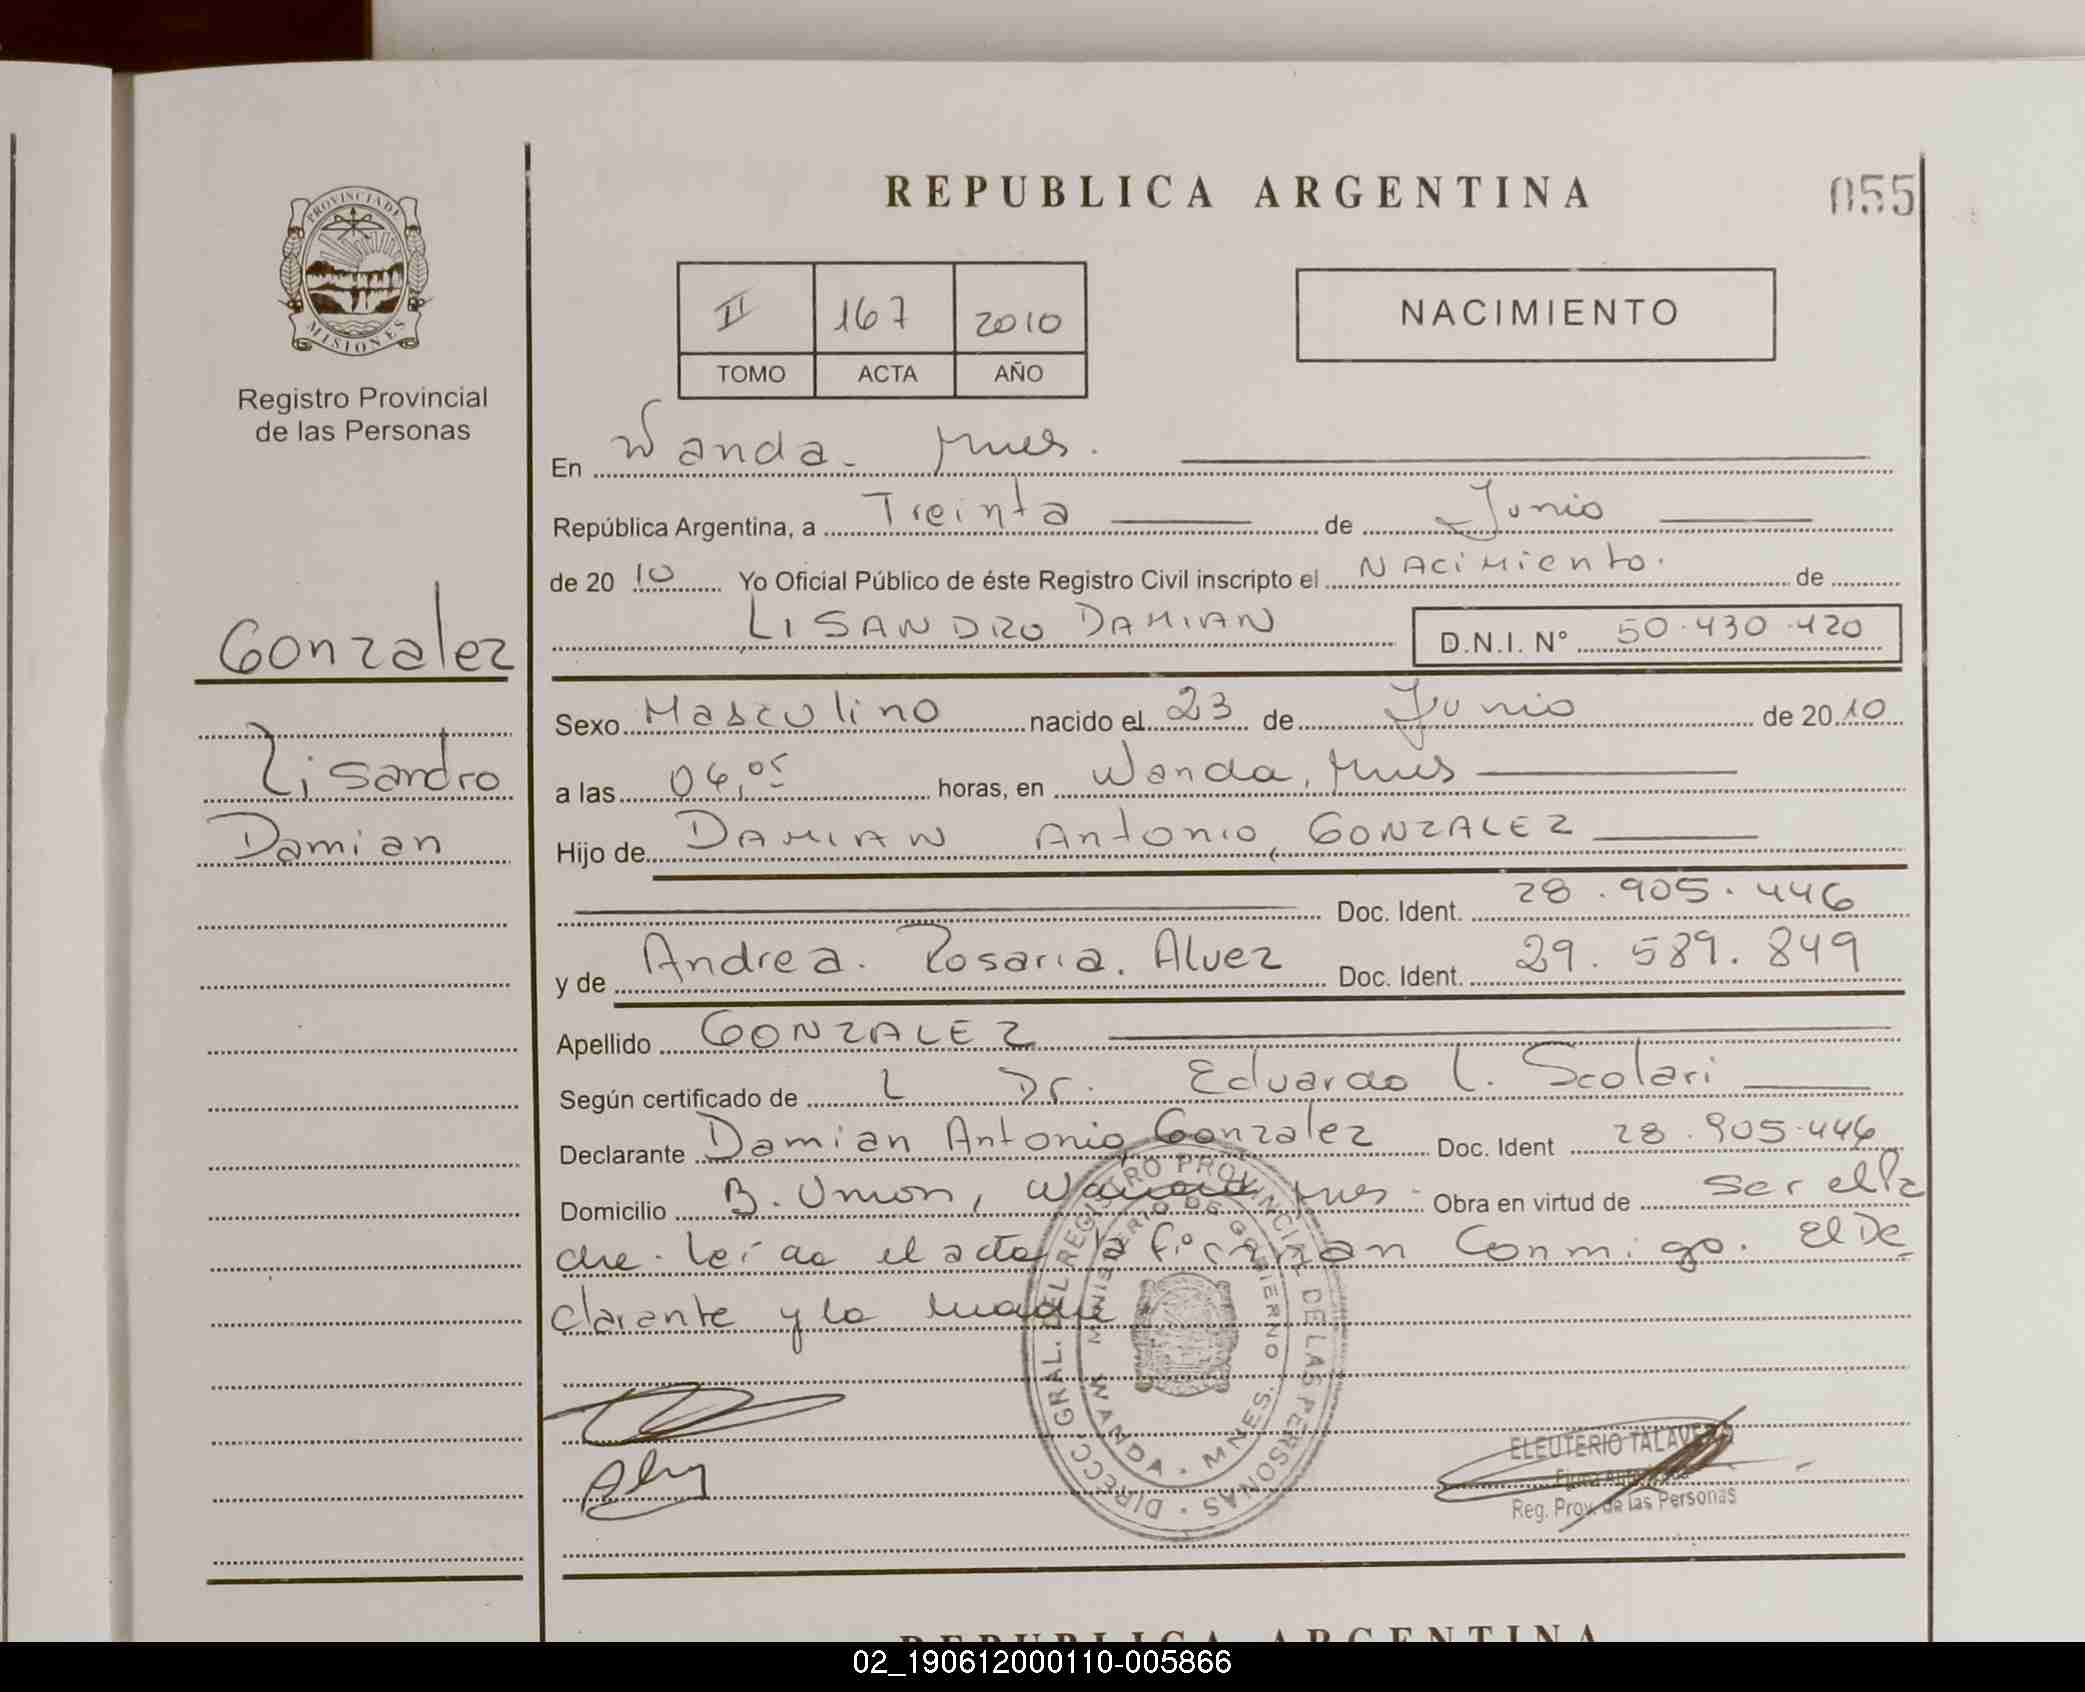 REPUBLICA ARGENTINA
055
PROVINCIA DE
MISIONES
Registro Provincial
de las Personas
II 167 2010
TOMO ACTA AÑO
NACIMIENTO
En Wanda - Mnes.
República Argentina, a Treinta de Junio
de 20 10 Yo Oficial Público de éste Registro Civil inscripto el NAcimiento. de
LISANDRO DAMIAN D.N.I. Nº 50.430.420
Gonzalez
Lisandro
Damian
Sexo Masculino nacido el 23 de Junio de 20 10
a las 04,05 horas, en Wanda, Mnes
Hijo de DAMIAN Antonio, GONZALEZ
Doc. Ident. 28.905.446
y de Andrea. Rosaria. Alvez Doc. Ident. 29.589.849
Apellido GONZALEZ
Según certificado de L Dr. Eduardo L. Scolari
Declarante Damian Antonio Gonzalez Doc. Ident 28.905.446
Domicilio B. Union, Wanda Mnes. Obra en virtud de ser el Pa
dre. Leída el acta la firman Conmigo. El De
clarante y la madre
DIRECC. GRAL. DEL REGISTRO PROVINCIAL DE LAS PERSONAS
MINISTERIO DE GOBIERNO
WANDA - MNES.
ELEUTERIO TALAVERA
Firma Autorizada
Reg. Prov. de las Personas
REPUBLICA ARGENTINA
02_190612000110-005866